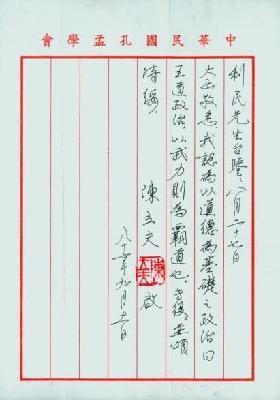 中華民國孔孟學會
利民先生台鑒：八月二十七日
大函敬悉，我認為以道德為基礎之政治曰
王道政治，以武力則為霸道也，專復並頌
時綏
陳立夫 啟
八十六年九月十一日